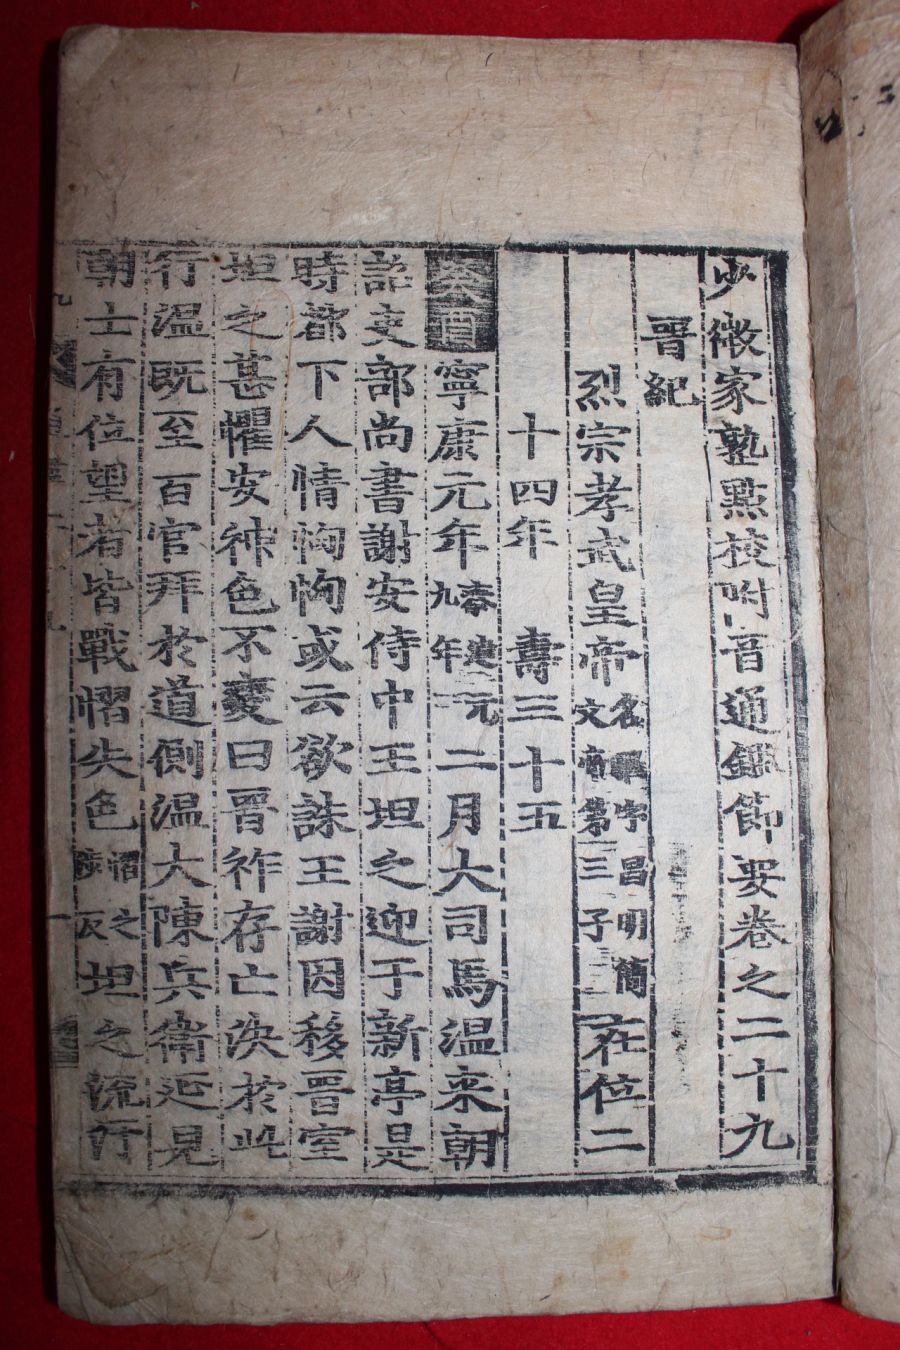 少微家塾點校附音通鑑節要卷之二十九
晋紀
烈宗孝武皇帝名曜字昌明簡文帝第三子在位二
十四年 壽三十五
癸酉寧康元年秦建元九年二月大司馬温来朝
詔吏部尚書謝安侍中王坦之迎于新亭是
時都下人情恟恟或云欲誅王謝因移晋室
坦之甚懼安神色不變曰晋祚存亡決於此
行温既至百官拜於道側温大陳兵衛延見
朝士有位望者皆戰慴失色之反坦之流汗